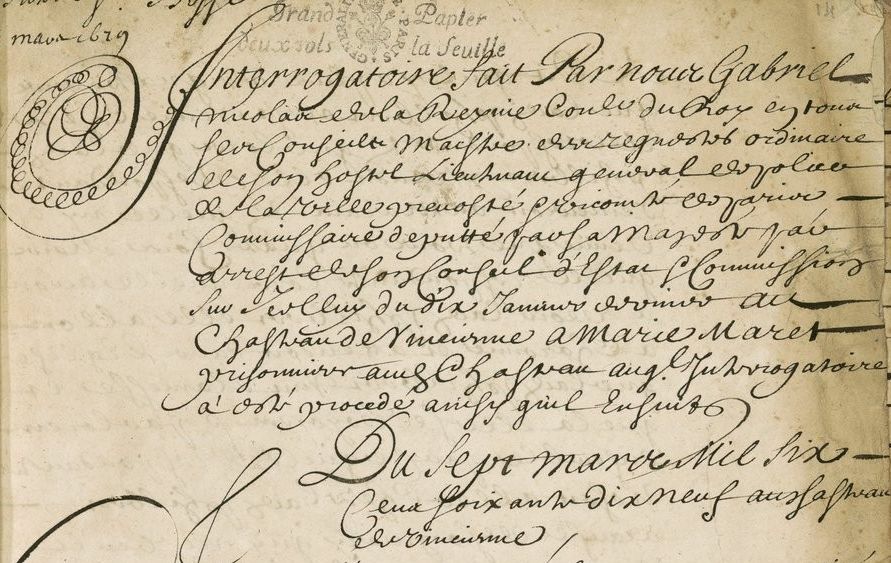 mars 1679
Grand Papier
deux sols la feuille
GENERALITE PARIS
Interrogatoire fait Par nous Gabriel
nicolas de la Reynie Con.er du Roy en tous
ses Conseils Maistre des requestes ordinaire
de son hostel Lieutenant general de police
de la ville prevosté et vicomté de paris
Commissaire deputté par sa Majesté par
arrest de son Conseil d'Estat et Commission
sur Icelluy du dix Janvier dernier au
Chasteau de Vincienne a Marie Maret
prisonniere aud Chasteau auq.l Interrogatoire
a esté procedé ainsy quil Ensuit
Du sept mars Mil six
Cens soixante dix neuf au chasteau
de vincienne